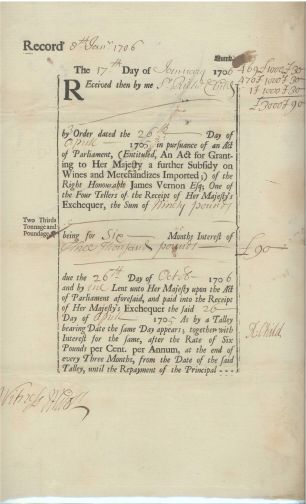 Record 8th Janry 1706
Numb.
469 £1000 £30
470 £1000 £30
£1000 £30
£3000 £90
The 17th Day of January 1706
Received then by me Sr Child
by Order dated the 26th Day of
Aprill 1705 in pursuance of an Act
of Parliament, (Entituled, An Act for Grant-
ing to Her Majesty a further Subsidy on
Wines and Merchandizes Imported;) of
the Right Honourable James Vernon Esq; One
of the Four Tellers of the Receipt of Her Majesty's
Exchequer, the Sum of Ninety pounds
Two Thirds
Tonnage and
Poundage,
being for Six Months Interest of
Three Thousand pounds
£90
due the 26th Day of Octobr 1706
and by me Lent unto Her Majesty upon the Act
of Parliament aforesaid, and paid into the Receipt
of Her Majesty's Exchequer the said 26
Day of Aprill 1705 As by a Talley
bearing Date the same Day appears; together with
Interest for the same, after the Rate of Six
Pounds per Cent. per Annum, at the end of
every Three Months, from the Date of the said
Talley, until the Repayment of the Principal
Child
Witness